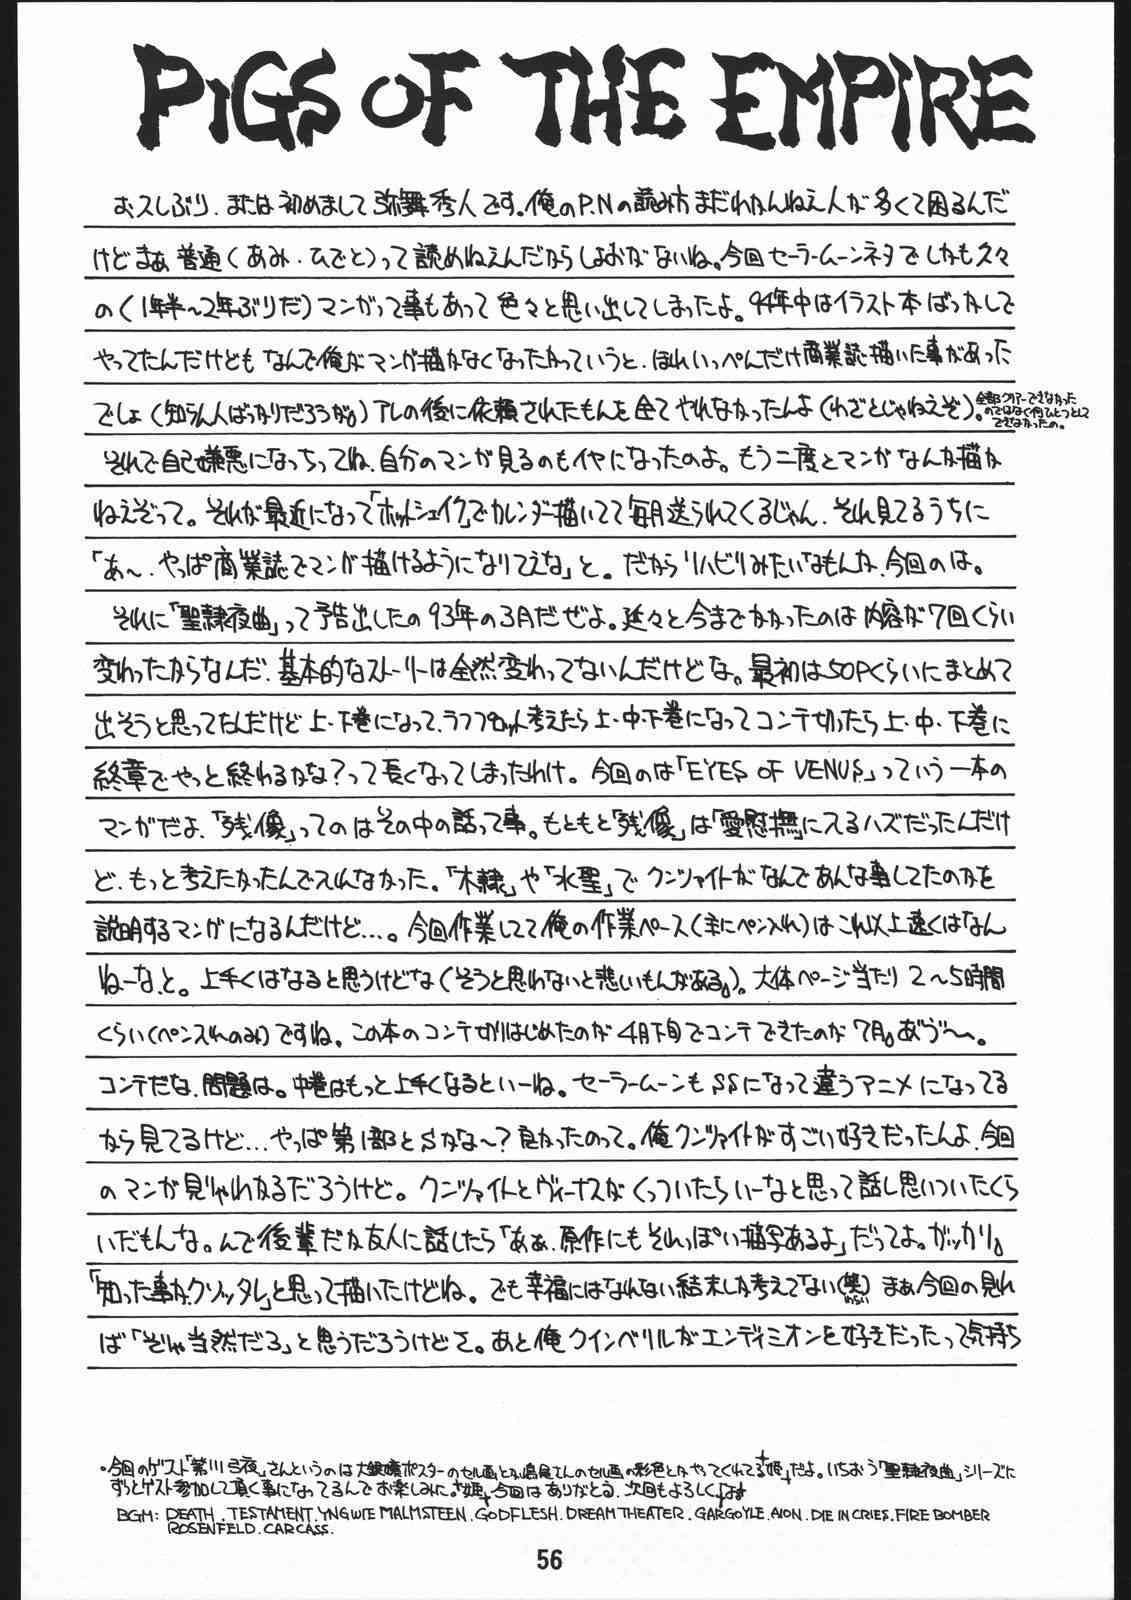 PIGS OF THE EMPIRE
おスしぶり、または初めまして弥舞秀人です。俺のP.Nの読み方まだわかんねえ人が多くて困るんだ
けどまあ普通（あみ・ひでと）って読めねえんだからしょおがないね。今回セーラームーンネタでしかも久々
の（1年半〜2年ぶりだ）マンガって事もあって色々と思い出してしまったよ。94年中はイラスト本ばっかしで
やってたんだけどもなんで俺がマンガ描かなくなったかっていうと、ほれいっぺんだけ商業誌描いた事があった
でしょ（知らん人ばっかりだろうが。）アレの後に依頼されたもんを全てやれなかったんよ（わざとじゃねえぞ）。
全部クリアーできなかった
のではなく何ひとつとして
できなかったの。
それで自己嫌悪になっちってね、自分のマンガ見るのもイヤになったのよ。もう二度とマンガなんか描か
ねえぞって。それが最近になって「ホットシェイク」でカレンダー描いてて毎月送られてくるじゃん、それ見てるうちに
「あ〜、やっぱ商業誌でマンガ描けるようになりてえな」と。だからリハビリみたいなもんか、今回のは。
それに「聖隷夜曲」って予告出したの93年の3月だぜよ。延々と今までかかったのは内容が7回くらい
変わったからなんだ、基本的なストーリーは全然変わってないんだけどな。最初は50Pくらいにまとめて
出そうと思ってたんだけど上・下巻になって、ラフプロット考えたら上・中・下巻になってコンテ切ったら上・中・下巻に
終章でやっと終わるかな？って長くなってしまったわけ。今回のは「EYES OF VENUS」っていう一本の
マンガだよ、「残像」ってのはその中の話って事。もともと「残像」は「愛慰撫」に入るハズだったんだけ
ど、もっと考えたかったんで入れなかった。「木隷」や「水聖」でクンツァイトがなんであんな事してたのかを
説明するマンガになるんだけど…。今回作業してて俺の作業ペース（主にペン入れ）はこれ以上速くはなん
ねーな、と。上手くはなると思うけどな（そうと思わないと悲しいもんがある。）。大体ページ当たり2〜5時間
くらい（ペン入れのみ）ですね。この本のコンテ切りはじめたのが4月下旬でコンテできたのが7月。あ゛う゛〜。
コンテだな、問題は。中巻はもっと上手くなるといーね。セーラームーンもSSになって違うアニメになってる
から見てるけど…やっぱ第1部とSかな〜？良かったのって。俺クンツァイトがすごい好きだったんよ、今回
のマンガ見りゃわかるだろうけど。クンツァイトとヴィーナスがくっついたらいーなと思って話し思いついたくら
いだもんな。んで後輩だか友人に話したら「あぁ、原作にもそれっぽい描写あるよ」だってよ。ガッカリ。
「知った事か、クソッタレ」と思って描いたけどね。でも幸福にはなれない結末しか考えてない（笑）まあ今回の見れ
ば「そりゃ当然だろ」と思うだろうけどさ。あと俺クインベリルがエンディミオンを好きだったって気持ち
・今回のゲスト「第川弓夜」さんというのは大銀嬢ポスターのセル画とか島尾てんのセル画の彩色とかやってくれてる“姫”だよ。いちおう「聖隷夜曲」シリーズに
ずっとゲスト参加して頂く事になってるんでお楽しみに。“姫”今回はありがとう、次回もよろしくよ
BGM: DEATH. TESTAMENT. YNGWIE MALMSTEEN. GODFLESH. DREAM THEATER. GARGOYLE. AION. DIE IN CRIES. FIRE BOMBER
ROSENFELD. CARCASS.
56